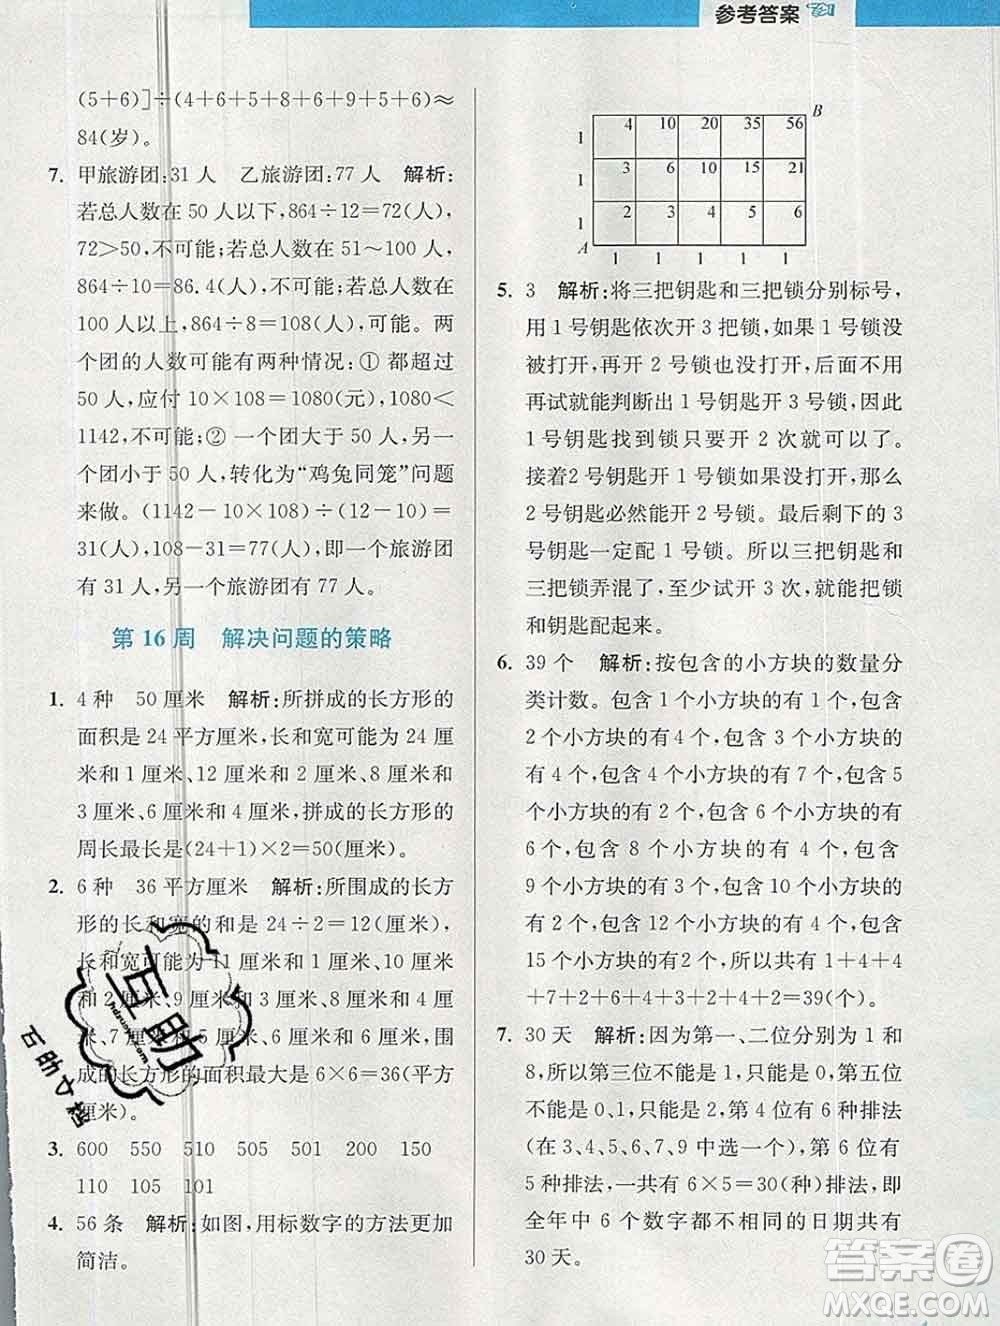 参考答案
(5+6)]÷(4+6+5+8+6+9+5+6)≈
84(岁)。
7. 甲旅游团:31 人 乙旅游团:77 人 解析:
若总人数在 50 人以下,864÷12=72(人),
72>50,不可能;若总人数在 51～100 人,
864÷10=86.4(人),不可能;若总人数在
100 人以上,864÷8=108(人),可能。两
个团的人数可能有两种情况:① 都超过
50 人,应付 10×108=1080(元),1080<
1142,不可能;② 一个团大于 50 人,一个
团小于 50 人,转化为“鸡兔同笼”问题
来做。(1142-10×108)÷(12-10)=
31(人),108-31=77(人),即一个旅游团
有 31 人,另一个旅游团有 77 人。
第 16 周 解决问题的策略
1. 4 种 50 厘米 解析:所拼成的长方形的
面积是 24 平方厘米,长和宽可能为 24 厘
米和1厘米、12 厘米和 2 厘米、8 厘米和
3 厘米、6 厘米和 4 厘米,拼成的长方形的
周长最长是(24+1)×2=50(厘米)。
2. 6 种 36 平方厘米 解析:所围成的长方
形的长和宽的和是 24÷2=12(厘米),
长和宽可能为 11 厘米和 1 厘米、10 厘米
和 2 厘米、9 厘米和 3 厘米、8 厘米和 4 厘
米、7 厘米和 5 厘米、6 厘米和 6 厘米,围
成的长方形的面积最大是 6×6=36(平方
厘米)。
3. 600 550 510 505 501 200 150
110 105 101
4. 56 条 解析:如图,用标数字的方法更加
简洁。
B
1 4 10 20 35 56
1 3 6 10 15 21
1 2 3 4 5 6
A 1 1 1 1 1
5. 3 解析:将三把钥匙和三把锁分别标号,
用 1 号钥匙依次开 3 把锁,如果 1 号锁没
被打开,再开 2 号锁也没打开,后面不用
再试就能判断出 1 号钥匙开 3 号锁,因此
1 号钥匙找到锁只要开 2 次就可以了。
接着2 号钥匙开 1 号锁如果没打开,那么
2 号钥匙必然能开 2 号锁。最后剩下的 3
号钥匙一定配 1 号锁。所以三把钥匙和
三把锁弄混了,至少试开 3 次,就能把锁
和钥匙配起来。
6. 39 个 解析:按包含的小方块的数量分
类计数。包含 1 个小方块的有 1 个,包含
2 个小方块的有 4 个,包含 3 个小方块的
有 4 个,包含 4 个小方块的有 7 个,包含 5
个小方块的有 2 个,包含 6 个小方块的有
6 个,包含 8 个小方块的有 4 个,包含
9 个小方块的有 3 个,包含 10 个小方块的
有 2 个,包含 12 个小方块的有 4 个,包含
15 个小方块的有 2 个,一共有 1+4+4
+7+2+6+4+3+2+4+2=39(个)。
7. 30 天 解析:因为第一、二位分别为 1 和
8,所以第三位不能是 1,只能是 0,第五位
不能是 0、1,只能是 2,第 4 位有 6 种排法
(在 3、4、5、6、7、9 中选一个),第 6 位有
5 种排法,一共有 6×5=30(种)排法,即
全年中 6 个数字都不相同的日期共有
30 天。
互助
hdzuoye.com
互助文档
答案圈
MXQE.COM